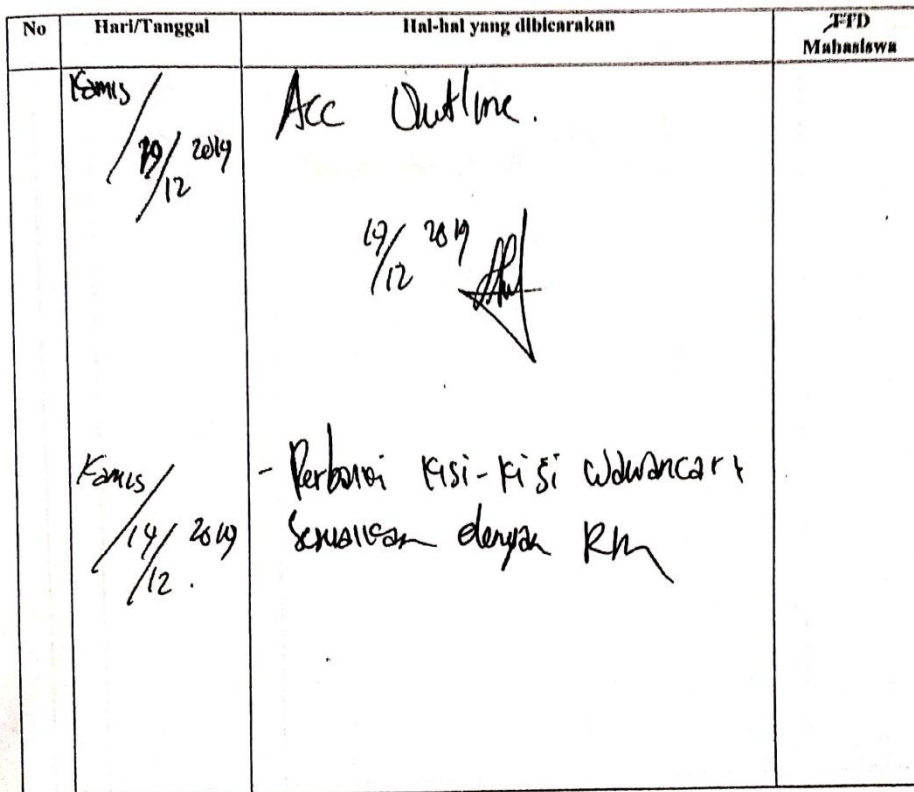 No Hari/Tanggal Hal-hal yang dibicarakan TTD
Mahasiswa
Kamis/ Acc Outline.
19/12 2019
19/12 2019
Kamis/ - Perbaiki kisi-kisi wawancara
19/12 2019. Sesuaikan dengan RM